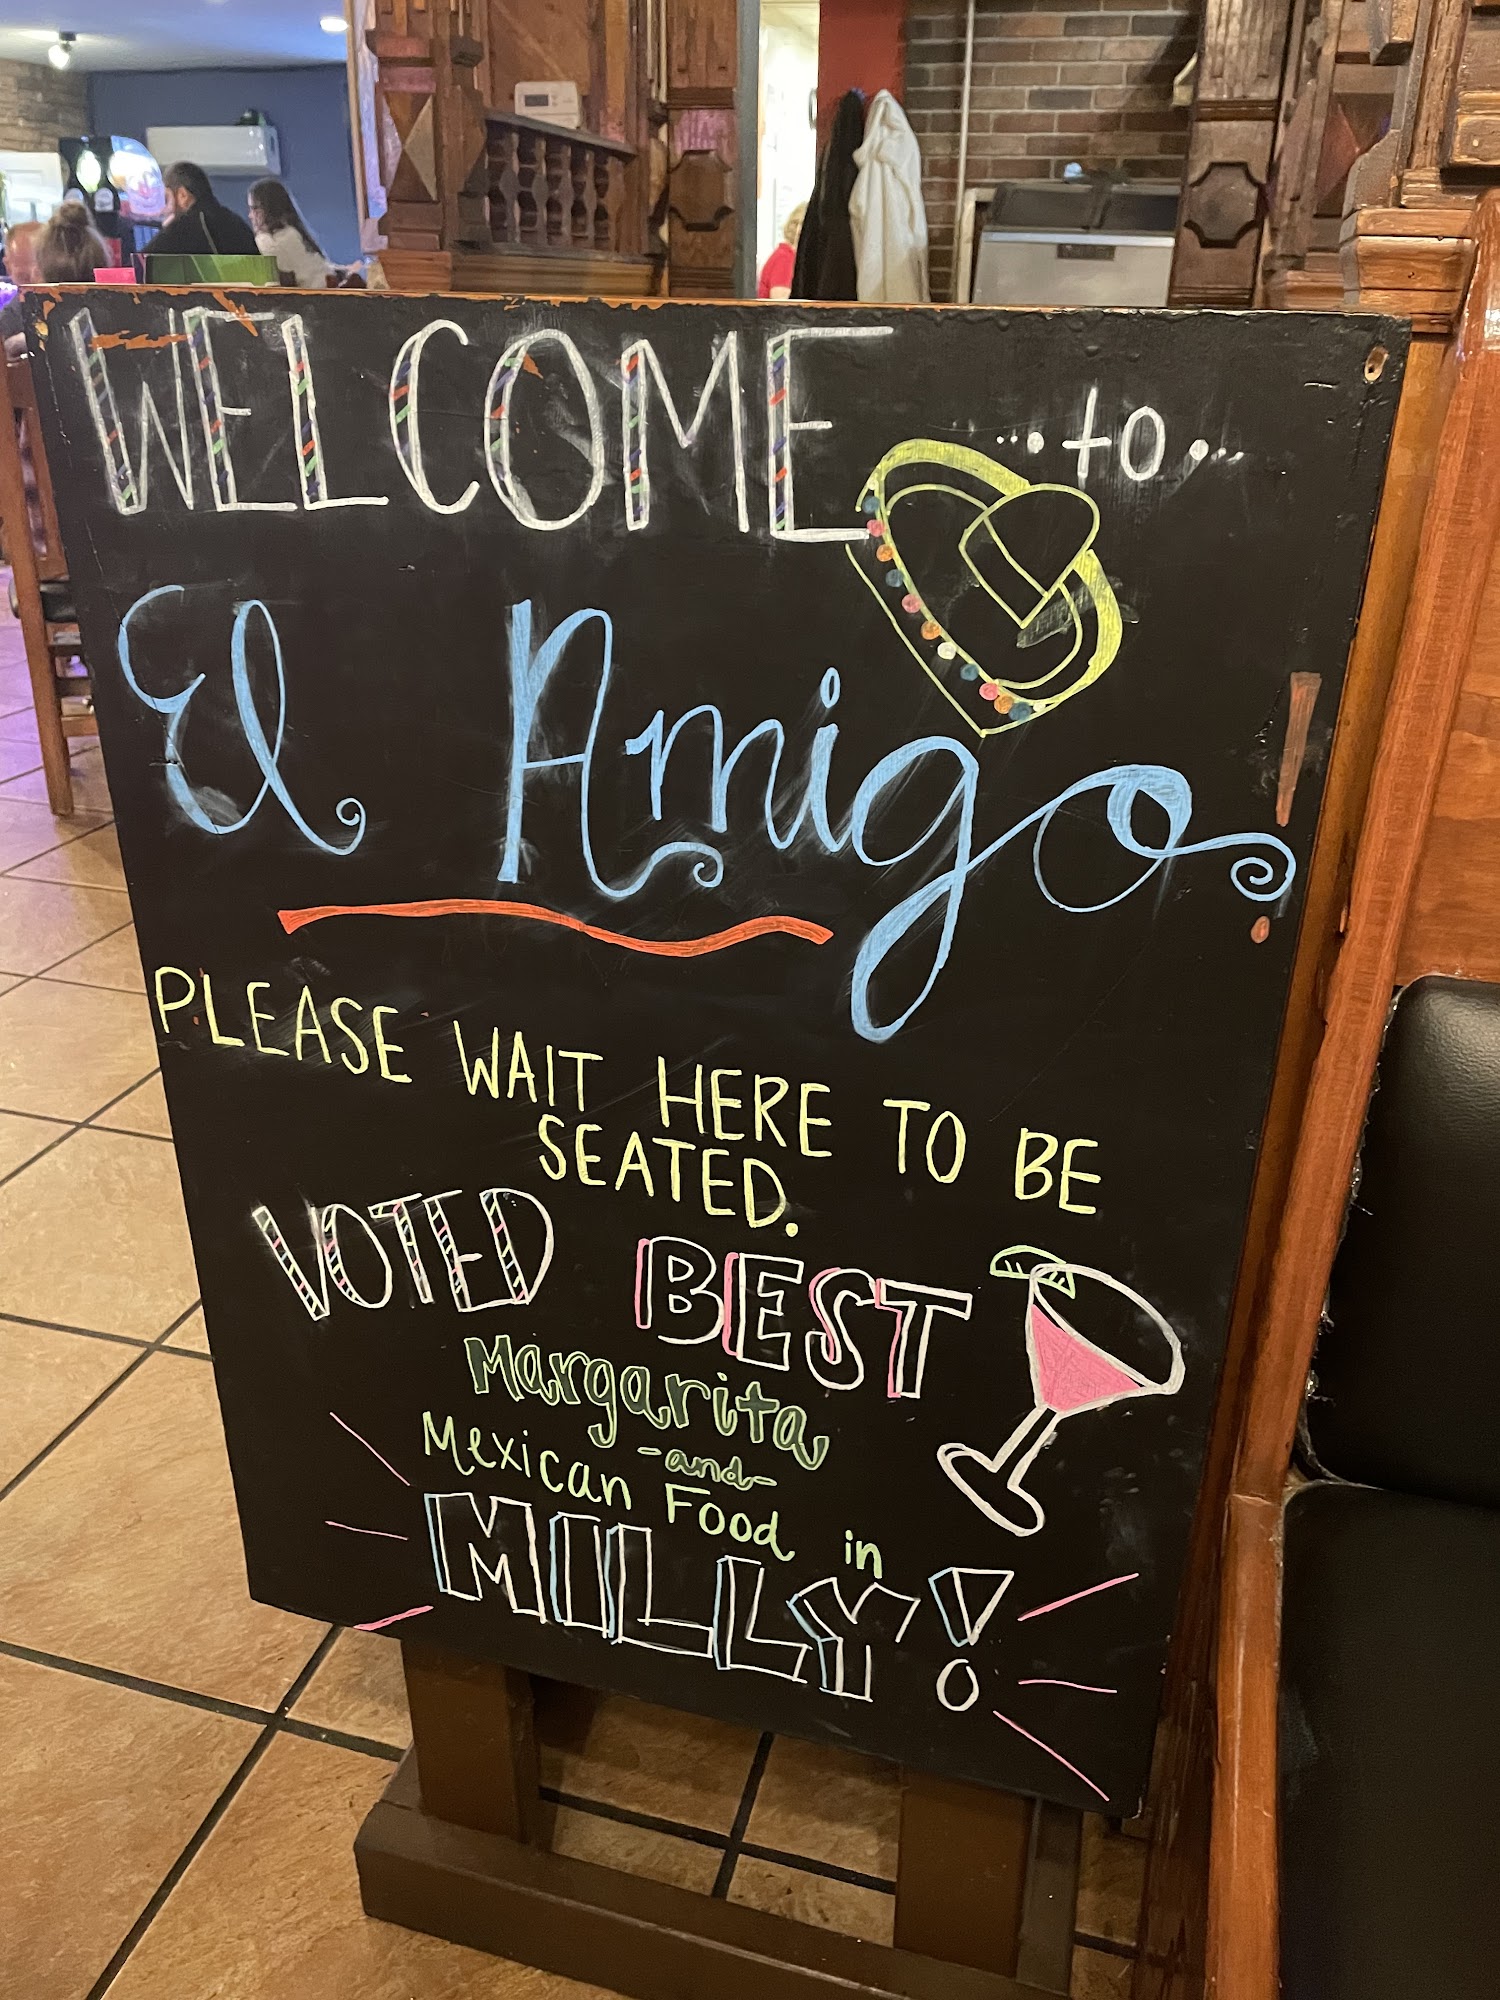 WELCOME ...to...
El Amigo!
PLEASE WAIT HERE TO BE
SEATED.
VOTED BEST
Margarita
-and-
Mexican Food in
MILLY!